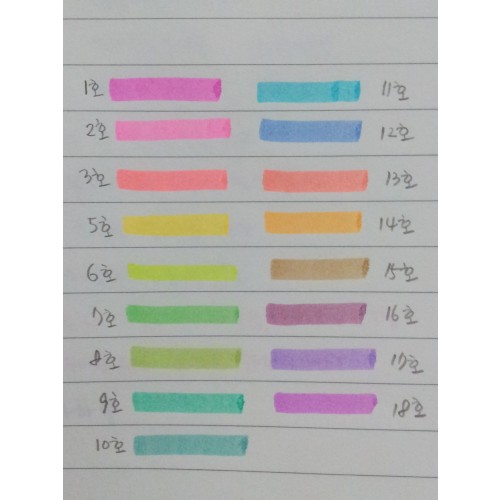 1호 11호
2호 12호
3호 13호
5호 14호
6호 15호
7호 16호
8호 17호
9호 18호
10호